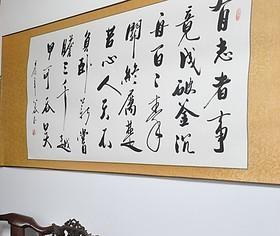 有志者事
竟成破釜沉
舟百二秦
關終屬楚
苦心人天不
負卧薪嘗
膽三千越
甲可吞吴